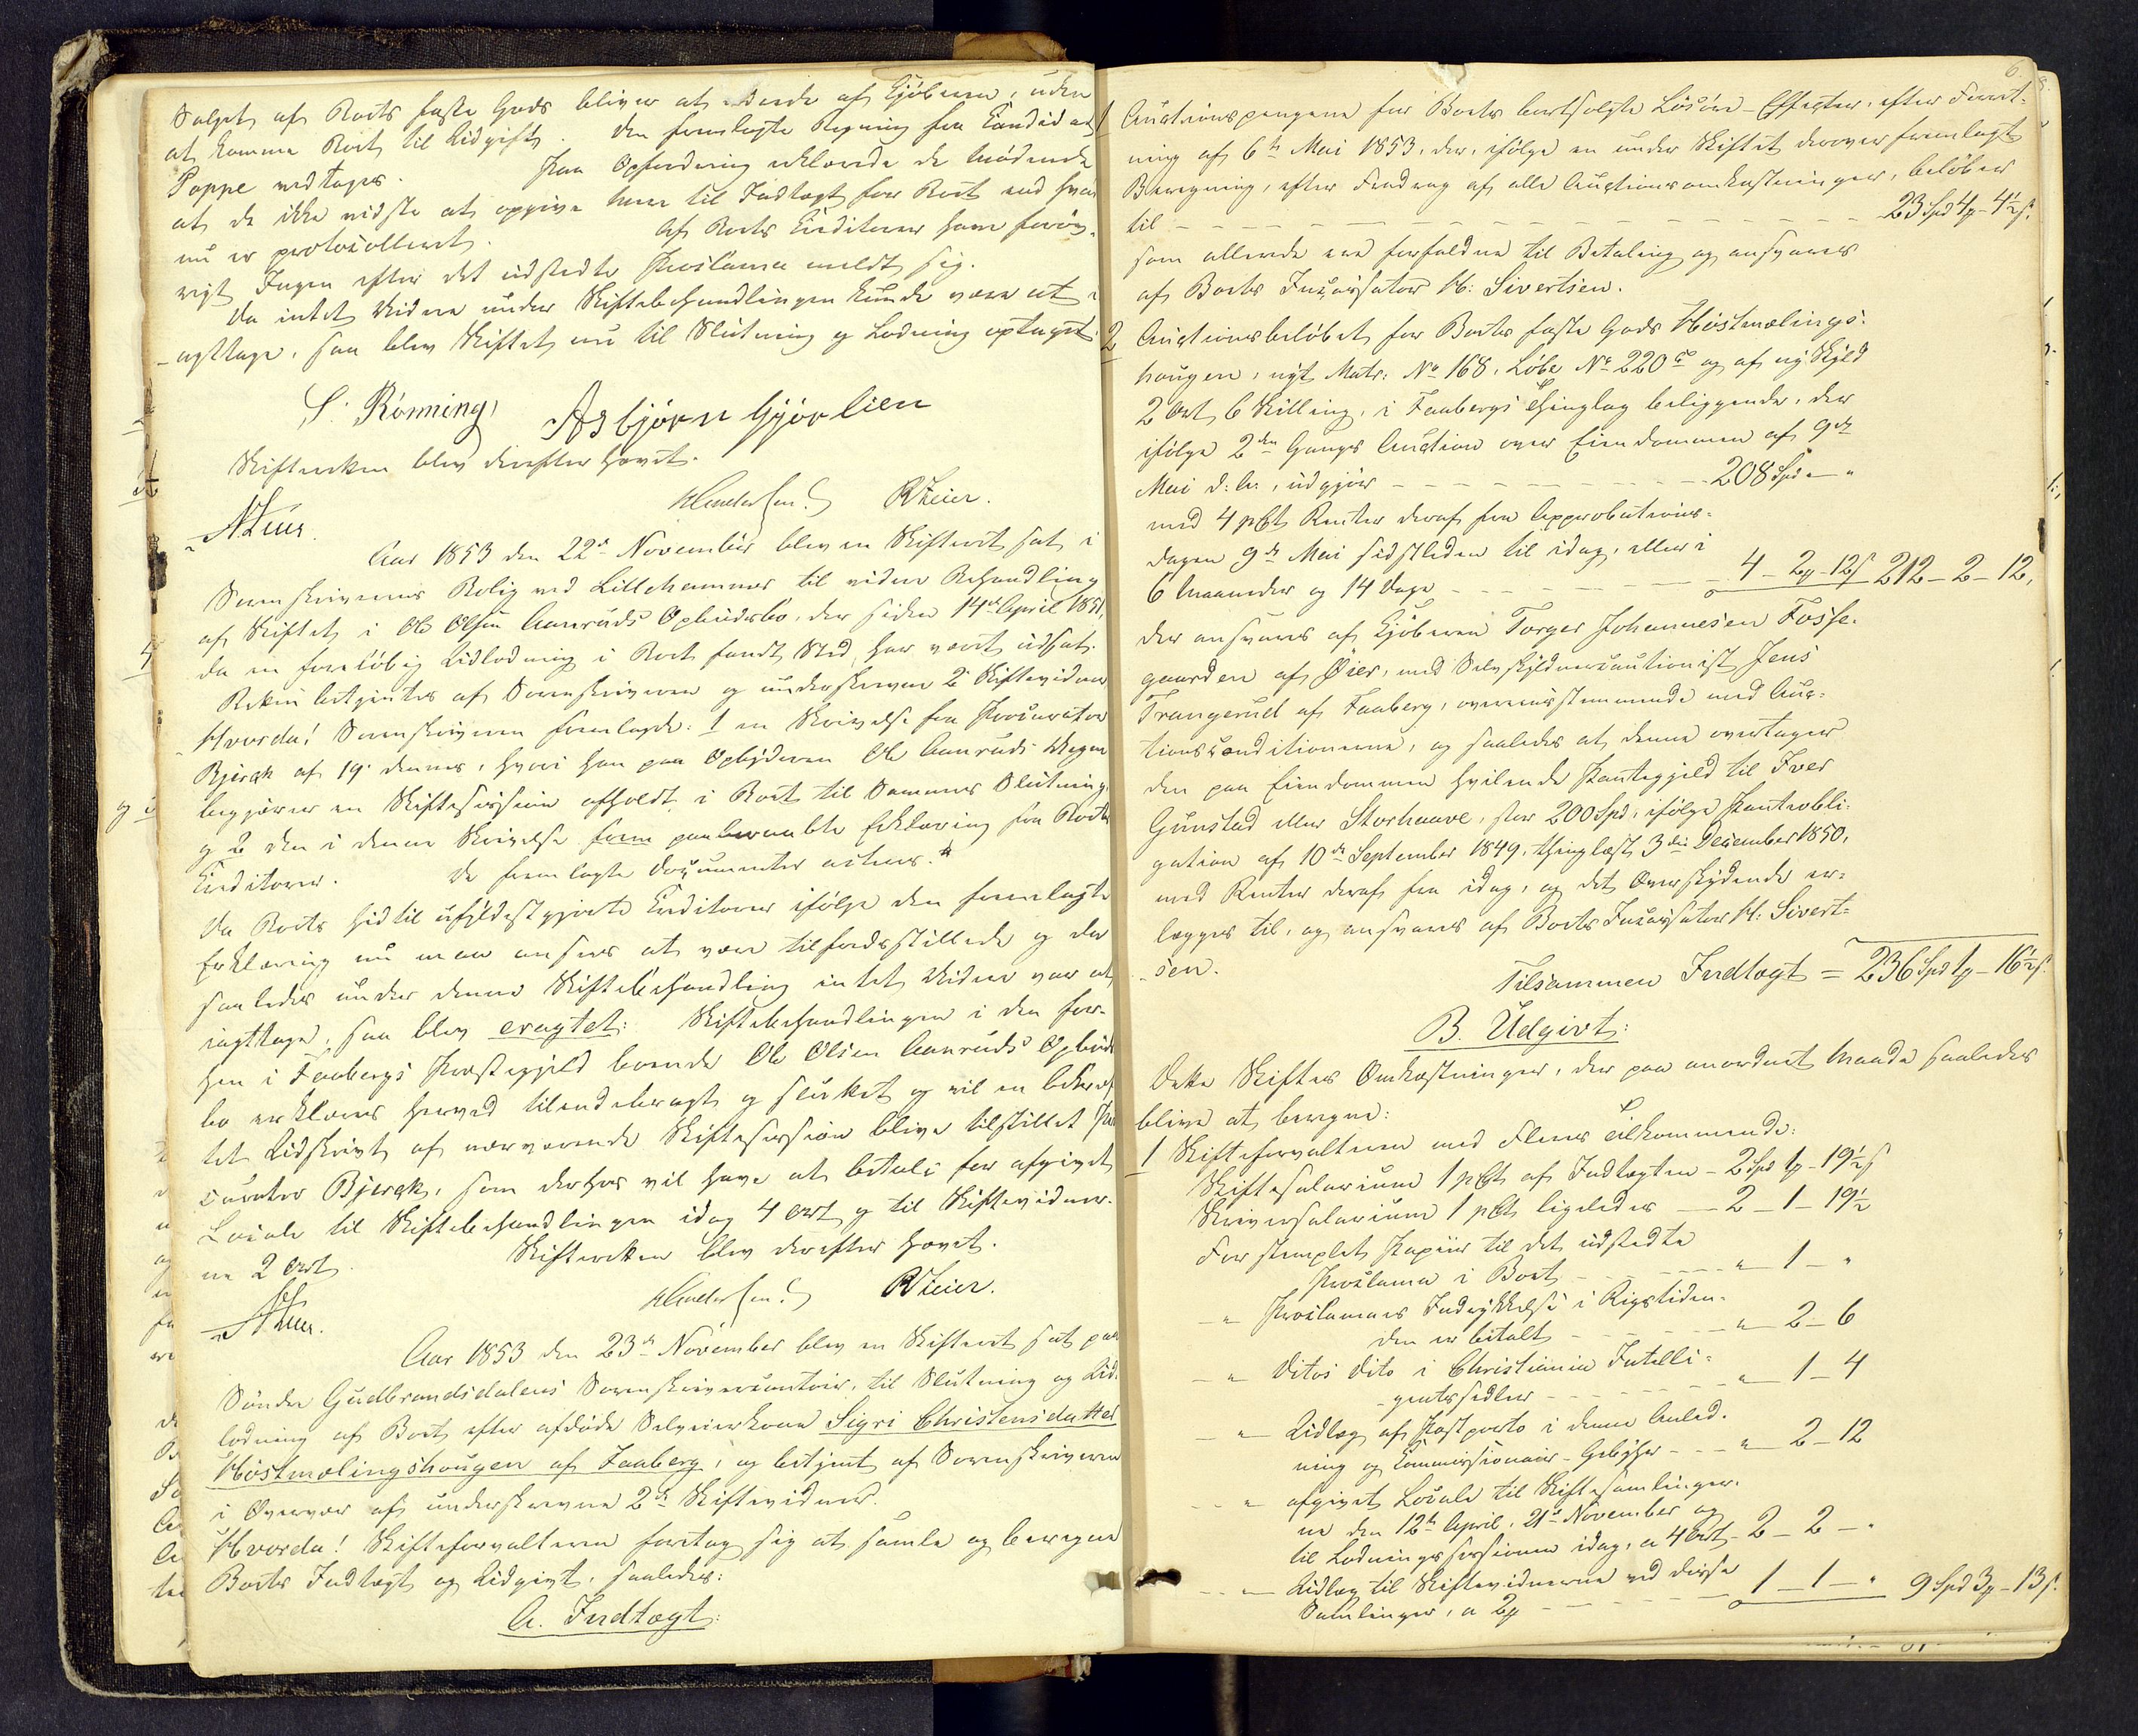 Salget af Boets faste Gods bliver at udrede af Kjøberen, uden
at komme Boet til Udgift. Den fremlagte Regning fra Candidat
Poppe vedtages. Paa Opfordring erklærede de Mødende
at de ikke vidste at opgive mere til Indtægt for Boet end hvad
nu er protocolleret. Af Boets Creditorer have forøv-
rigt Ingen efter det udstedte Proclama meldt sig.
Da intet Videre under Skiftebehandlingen kunde være at i-
agttage, saa blev Skiftet nu til Slutning og Lodning optaget.
S. Rønning, Asbjørn Gjørlien
Skifteretten blev derefter hævet.
Aar 1853 den 22de November blev en Skifteret sat i
Sorenskriverens Bolig ved Lillehammer til videre Behandling
af Skiftet i Ole Olsen Aanruds Opbudsbo, der siden 14de April 1851,
da en foreløbig Udlodning i Boet fandt Sted, har været udsat.
Retten betjentes af Sorenskriveren og underskrevne 2 Skiftevidner
Hvorda! Sorenskriveren fremlagde: 1 en Skrivelse fra Procurator
Bjerck af 19 dennes, hvori han paa Opbyderen Ole Aanruds Vegne
begjærer en Skiftesession afholdt i Boet til Sammes Slutning,
og 2 den i denne Skrivelse paaberaabte Erklæring fra Boets
Creditorer. De fremlagte Documenter acteres.
Da Boets hidtil ufyldestgjorte Creditorer ifølge den fremlagte
Erklæring nu maa ansees at være tilfredsstillede og der
saaledes under denne Skiftebehandling intet Videre var at
iagttage, saa blev eragtet: Skiftebehandlingen i den for-
hen i Faabergs Præstegjeld boende Ole Olsen Aanruds Opbuds-
bo erklæres herved tilendebragt og sluttet og vil en bekræf-
tet Udskrivt af nærværende Skiftesession blive tilstillet Pro-
curator Bjerck, som derhos vil have at betale for afgivet
Locale til Skiftebehandlingen idag 4 Ort og til Skiftevidner-
ne 2 Ort. Skifteretten blev derefter hævet.
Aar 1853 den 23de November blev en Skifteret sat paa
Søndre Gudbrandsdalens Sorenskrivercontoir, til Slutning og Ud-
lodning af Boet efter afdøde Selveierkone Sigri Christensdatter
Høstmælingshougen af Faaberg, og betjent af Sorenskriveren
i Overvær af underskrevne 2de Skiftevidner.
Hvorda! Skifteforvalteren foretog sig at samle og beregne
Boets Indtægt og Udgivt, saaledes:
A. Indtægt:
6.
1 Auctionspengene for Boets bortsolgte Løsøre-Effecter, efter Forret-
ning af 6te Mai 1853, der, ifølge en under Skiftet derover fremlagt
Beregning, efter Fradrag af alle Auctionsomkostninger, beløber
til - - - 23 Spd 4 - 4½ s.
som allerede ere forfaldne til Betaling og ansvares
af Boets Incassator H: Sivertsen.
2 Auctionsbeløbet for Boets faste Gods Høstmælings-
hougen, nyt Matr: No 168, Løbe No 220 c og af ny Skyld
2 Ort 6 Skilling, i Faabergs Thinglag beliggende, der
ifølge 2den Gangs Auction over Eiendommen af 9de
Mai d: A:, udgjør - - - 208 Spd - "
med 4 pCt Renter deraf fra Approbations-
dagen 9de Mai sidstleden til idag, eller i
6 Maaneder og 14 Dage - - - 4 - 2 - 12 s 212 - 2 - 12,
der ansvares af Kjøberen Torger Johannesen Fosse-
gaarden af Øier, med Selvskyldnercautionist Jens
Trangerud af Faaberg, overeensstemmende med Auc-
tionsconditionerne, og saaledes at denne overtager
den paa Eiendommen hvilende Pantegjeld til Iver
Gunstad eller Storhaave, stor 200 Spd, ifølge Pantobli-
gation af 10de September 1849, thinglæst 3die December 1850,
med Renter deraf fra idag, og det Overskydende er-
lægges til, og ansvares af Boets Incassator H: Sivert-
sen.
Tilsammen Indtægt = 236 Spd 1 - 16½ s.
B. Udgivt:
Dette Skiftes Omkostninger, der paa anordnet Maade saaledes
blive at beregne:
1 Skifteforvalteren med Flere tilkommende:
Skiftesalarium 1 pCt af Indtægten - 2 Spd 1 - 19½ s
Skriversalarium 1 pCt ligeledes - 2 - 1 - 19½
For stemplet Papiir til det udstedte
Proclama i Boet - - - " 1 - "
- " Proclamaets Indrykkelse i Rigstiden-
den er betalt - - - " 2 - 6
- " Ditos Dito i Christiania Intelli-
gentssedler - - - " 1 - 4
- " Udlæg af Postporto i denne Anled-
ning og Commissionair-Gebyhr - - - " 2 - 12
- " afgivet Locale til Skiftesamlinger-
ne den 12te April, 21de November og
til Lodningssessionen idag, a 4 Ort - 2 - 2 - "
- " Udlæg til Skiftevidnerne ved disse
Samlinger, a 2 - - - 1 - 1 - " 9 Spd 3 - 13 s.